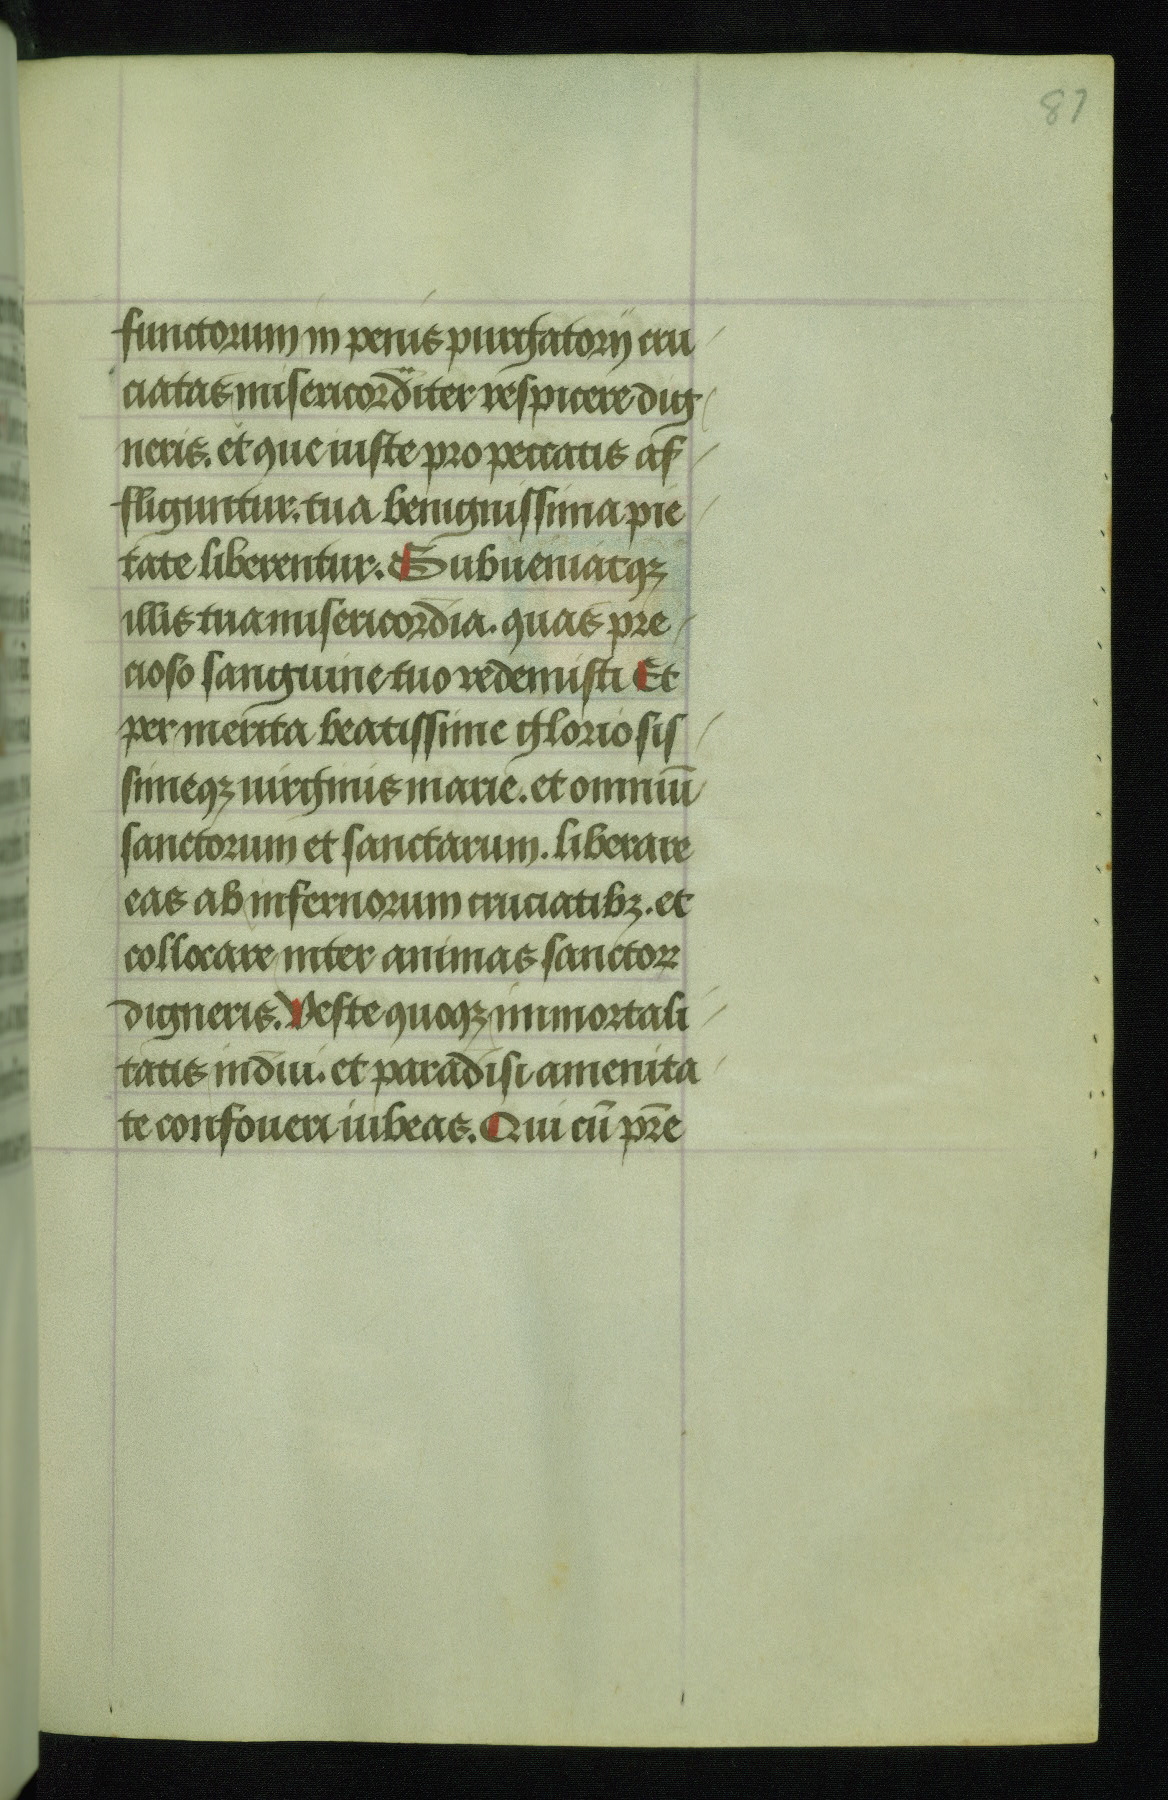 87
functorum in penis purgatorij cru
ciatas misericorditer respicere dig
neris. et que iuste pro peccatis af
fliguntur. tua benignissima pie
tate liberentur. Subueniatqꝫ
illis tua misericordia. quas pre
cioso sanguine tuo redemisti Et
per merita beatissime gloriosis
simeqꝫ uirginis marie. et omniū
sanctorum et sanctarum. liberare
eas ab infernorum cruciatibꝫ. et
collocare inter animas sanctoꝝ
digneris. Veste quoqꝫ immortali
tatis indui. et paradisi amenita
te confoueri iubeas. Qui cū pr̄e